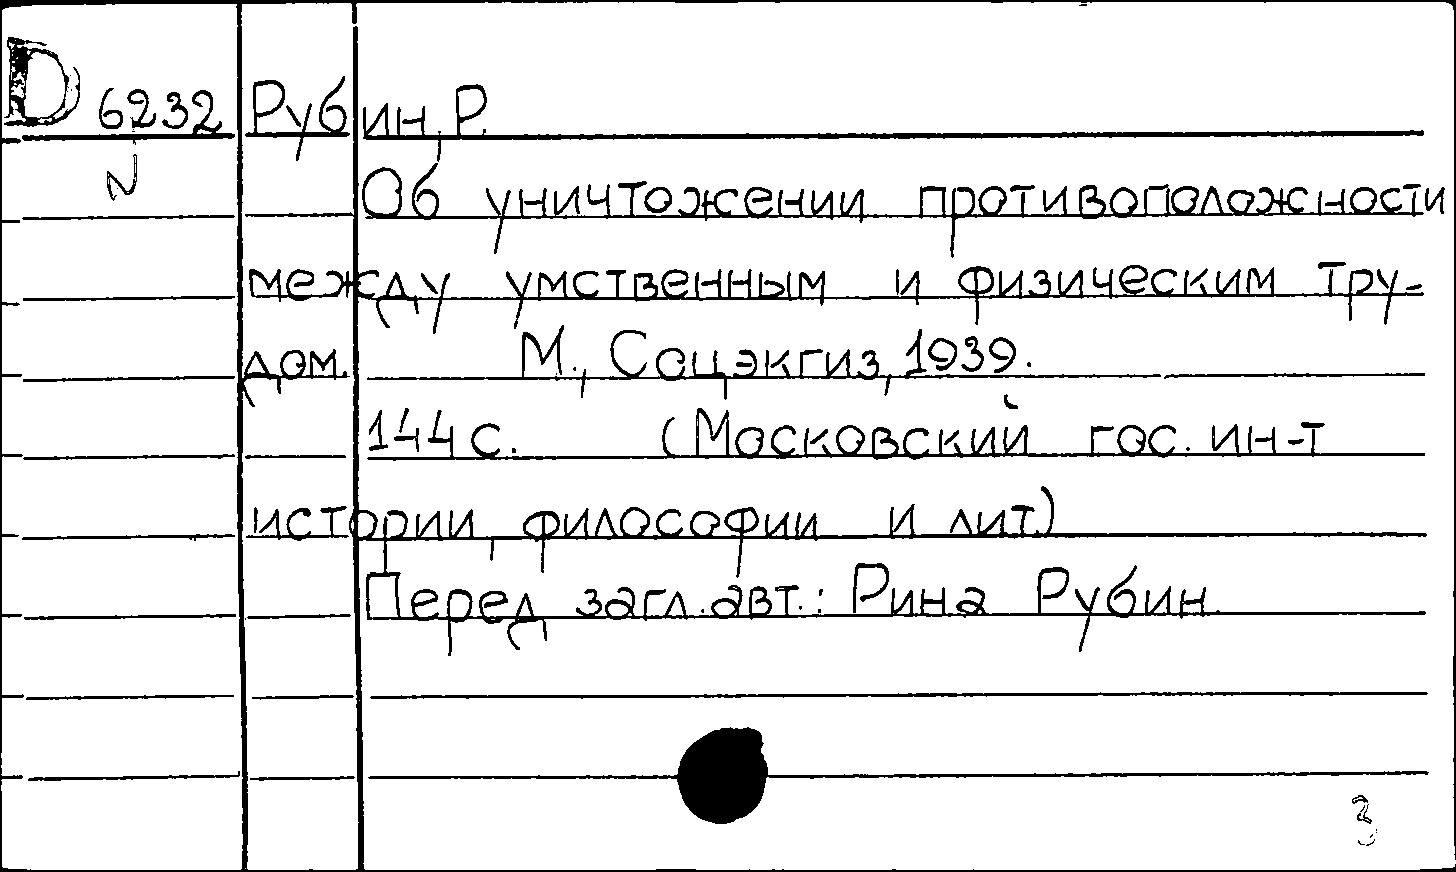 D 6232 Рубин, Р.
N
Об уничтожении противоположности
между умственным и физическим тру-
дом. М., Соцэкгиз, 1939.
144 с. (Московский гос. ин-т
истории, философии и лит.)
Перед загл. авт.: Рина Рубин.
3